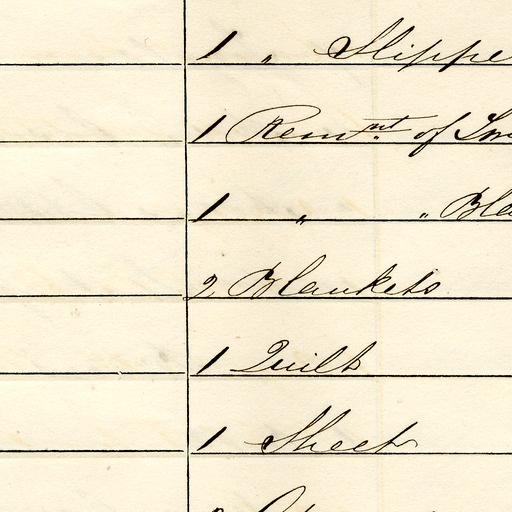 1 " Slippe
1 Remnt of
1 " " Bla
2 Blankets
1 Quilt
1 Sheet